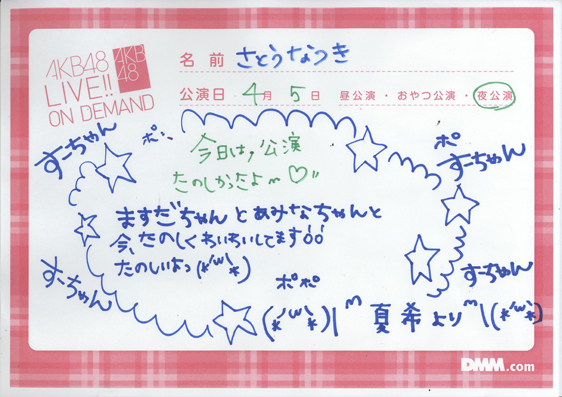 AKB48
LIVE!!
ON DEMAND
AKB
48
名前 さとうなつき
公演日 4月 5日 昼公演・おやつ公演・夜公演
すーちゃん
ポ
今日は,公演
たのしかったよ〜♡"
ポ
すーちゃん
ますだちゃんとあみなちゃんと
今、たのしくわいわいしてます
たのしいよっ(*'w'*)
すーちゃん
すーちゃん
ポポ
(*'w'*)| 夏希より |(*'w'*)
DMM.com